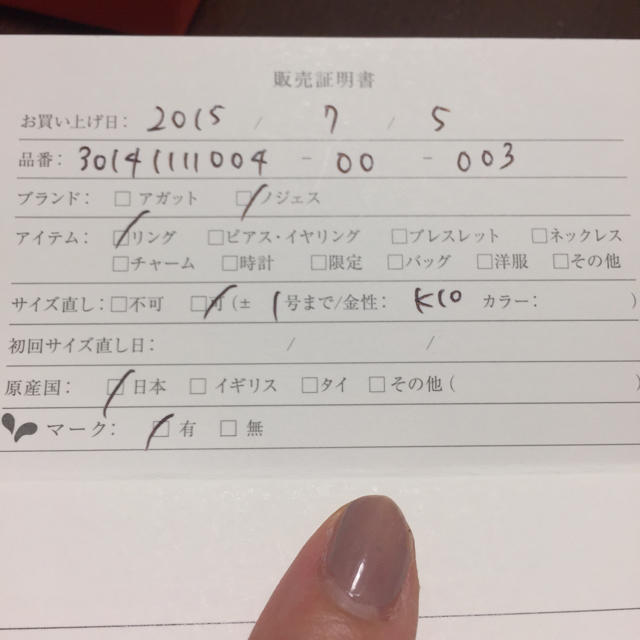 販売証明書
お買い上げ日: 2015 / 7 / 5
品番: 30141111004 - 00 - 003
ブランド: □ アガット ☑ノジェス
アイテム: ☑リング □ピアス・イヤリング □ブレスレット □ネックレス
□チャーム □時計 □限定 □バッグ □洋服 □その他
サイズ直し: □不可 ☑可 (± 1号まで/金性: K10 カラー: )
初回サイズ直し日: / /
原産国: ☑日本 □ イギリス □タイ □その他 ( )
マーク: ☑ 有 □ 無